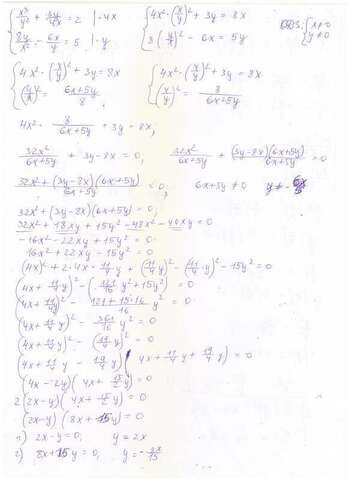 { x³/y² + 3y/4x = 2 | ·4x
{ 8y/x² − 6x/y = 5 | ·y
{ 4x² · (x/y)² + 3y = 8x
{ 8 (y/x)² − 6x = 5y
ОДЗ: { x≠0
{ y≠0
{ 4x² · (x/y)² + 3y = 8x
{ (y/x)² = (6x+5y)/8
{ 4x² · (x/y)² + 3y = 8x
{ (x/y)² = 8/(6x+5y)
4x² · 8/(6x+5y) + 3y = 8x;
32x²/(6x+5y) + 3y − 8x = 0; 32x²/(6x+5y) + (3y−8x)(6x+5y)/(6x+5y) = 0
(32x² + (3y−8x)(6x+5y))/(6x+5y) = 0, 6x+5y ≠ 0 y ≠ − 6x/5
32x² + (3y−8x)(6x+5y) = 0,
32x² + 18xy + 15y² − 48x² − 40xy = 0
−16x² − 22xy + 15y² = 0
16x² + 22xy − 15y² = 0
(4x)² + 2·4x · 11/4 y + (11/4 y)² − (11/4 y)² − 15y² = 0
(4x + 11/4 y)² − (121/16 y² + 15y²) = 0
(4x + 11/4 y)² − (121 + 15·16)/16 y² = 0
(4x + 11/4 y)² − 361/16 y² = 0
(4x + 11/4 y)² − (19/4 y)² = 0
(4x + 11/4 y − 19/4 y)(4x + 11/4 y + 19/4 y) = 0
(4x − 2y)(4x + 15/2 y) = 0
2(2x−y)(4x + 15/2 y) = 0
(2x−y)(8x + 15y) = 0
1) 2x−y = 0, y = 2x
2) 8x + 15y = 0, y = − 8x/15